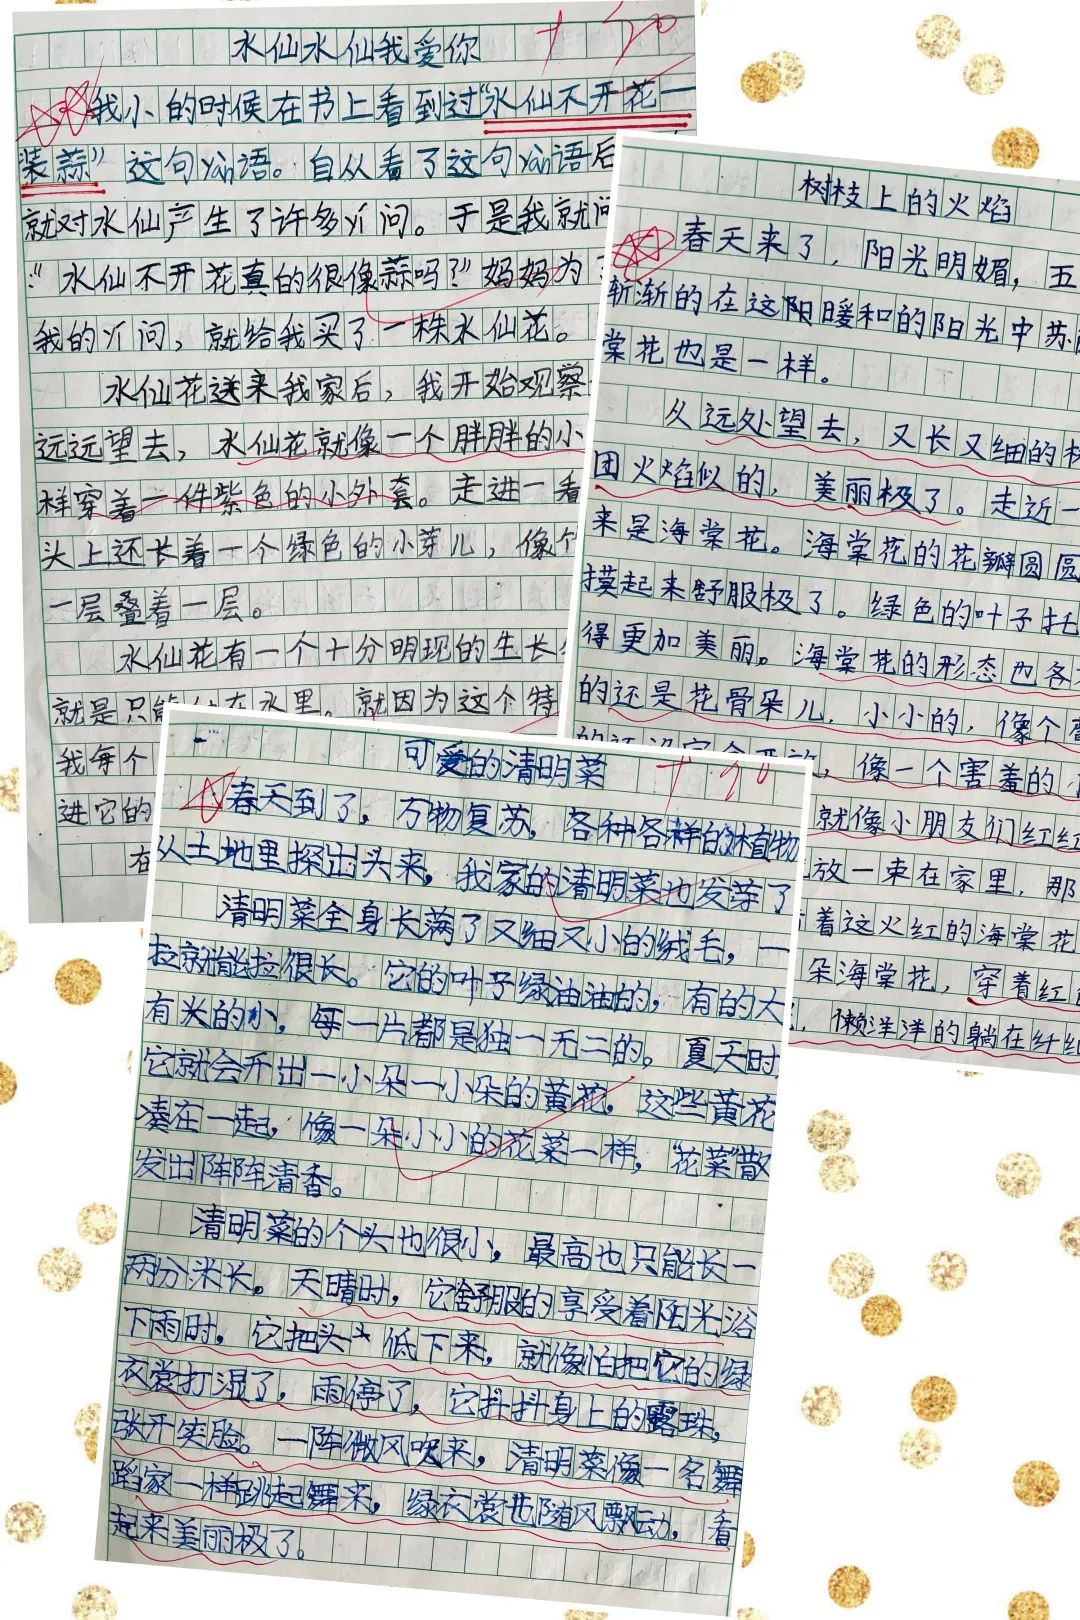 水仙水仙我爱你
+20
我小的时候在书上看到过“水仙不开花一
装蒜”这句yàn语。自从看了这句yàn语后
就对水仙产生了许多yí问。于是我就问
:“水仙不开花真的很像蒜吗?”妈妈为了
我的yí问，就给我买了一株水仙花。
水仙花送来我家后，我开始观察
远远望去，水仙花就像一个胖胖的小
样穿着一件紫色的小外套。走进一看
头上还长着一个绿色的小芽儿，像个
一层叠着一层。
水仙花有一个十分明现的生长
就是只能 在水里。就因为这个特
我每个
进它的
在
树枝上的火焰
春天来了，阳光明媚，五
渐渐的在这阳暖和的阳光中苏
棠花也是一样。
从远处望去，又长又细的树
团火焰似的，美丽极了。走近一
来是海棠花。海棠花的花瓣圆圆
摸起来舒服极了。绿色的叶子托
得更加美丽。海棠花的形态也各
的还是花骨朵儿，小小的，像个
，像一个害羞的小
就像小朋友们红红
放一束在家里，那
着这火红的海棠花
朵海棠花，穿着红
，懒洋洋的躺在纤细
可爱的清明菜
+20
春天到了，万物复苏，各种各样的植物
从土地里探出头来，我家的清明菜也发芽了
清明菜全身长满了又细又小的绒毛，一
拉就能拉很长。它的叶子绿油油的，有的大
有头的小，每一片都是独一无二的。夏天时，
它就会开出一小朵一小朵的黄花，这些黄花
凑在一起，像一朵小小的花菜一样，“花菜”散
发出阵阵清香。
清明菜的个头也很小，最高也只能长一
两分米长。天晴时，它舒服的享受着阳光浴
下雨时，它把头低下来，就像怕把它的绿
衣裳打湿了，雨停了，它抖抖身上的露珠，
张开笑脸。一阵微风吹来，清明菜像一名舞
蹈家一样跳起舞来，绿衣裳也随风飘动，看
起来美丽极了。